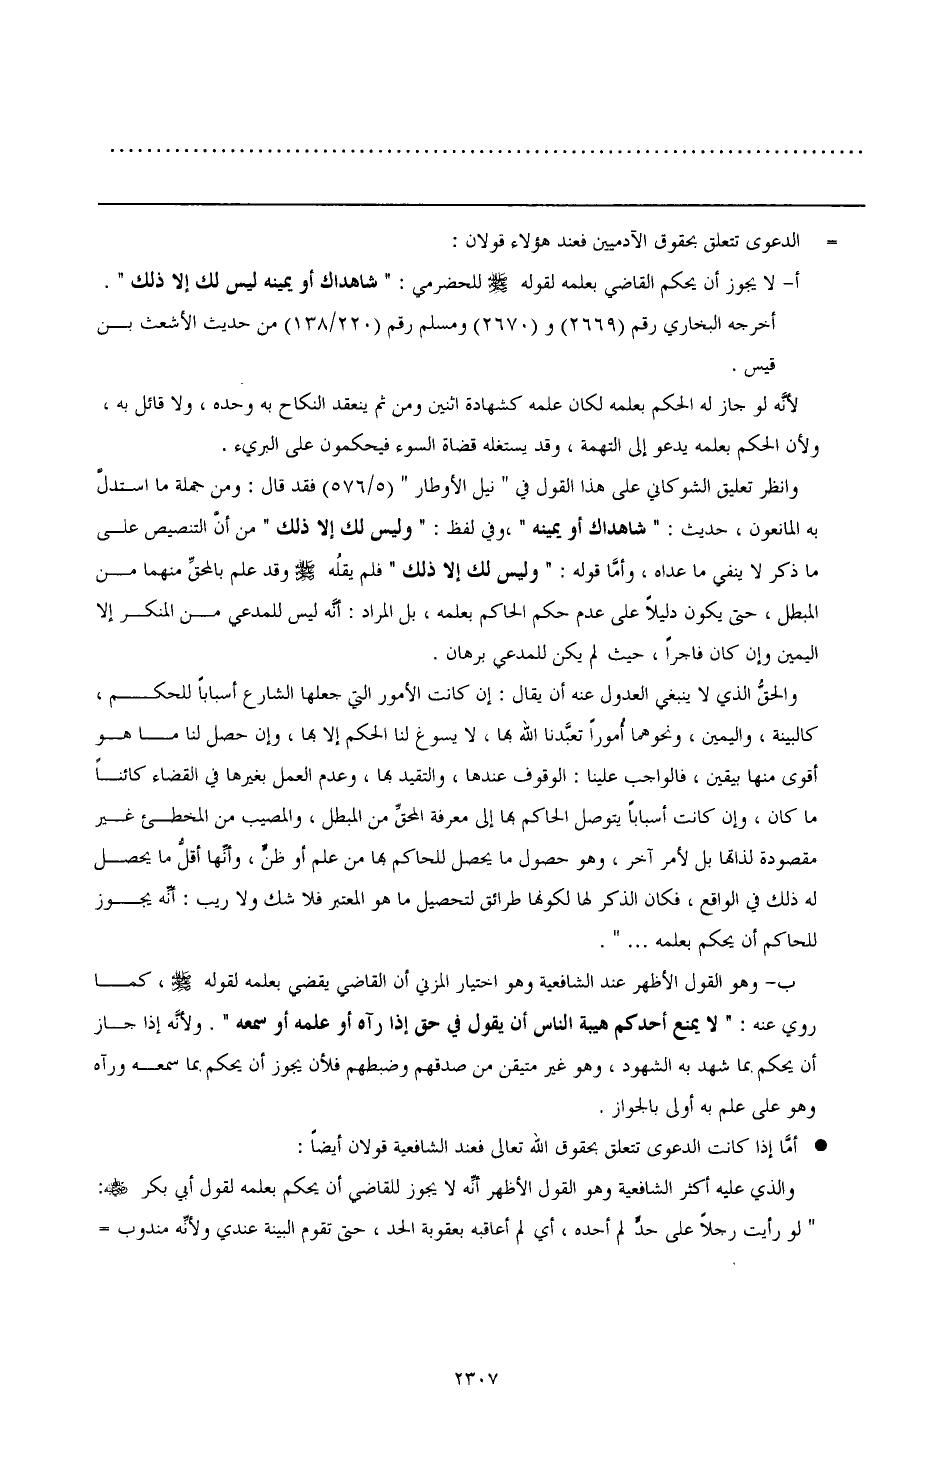 = الدعوى تتعلق بحقوق الآدميين فعند هؤلاء قولان :
أ- لا يجوز أن يحكم القاضي بعلمه لقوله ﷺ للحضرمي : " شاهداك أو يمينه ليس لك إلا ذلك " .
أخرجه البخاري رقم (٢٦٦٩) و (٢٦٧٠) ومسلم رقم (١٣٨/٢٢٠) من حديث الأشعث بن
قيس .
لأنَّه لو جاز له الحكم بعلمه لكان علمه كشهادة اثنين ومن ثم ينعقد النكاح به وحده ، ولا قائل به ،
ولأن الحكم بعلمه يدعو إلى التهمة ، وقد يستغله قضاة السوء فيحكمون على البريء .
وانظر تعليق الشوكاني على هذا القول في " نيل الأوطار " (٥٧٦/٥) فقد قال : ومن جملة ما استدلَّ
به المانعون ، حديث : " شاهداك أو يمينه " ،وفي لفظ : " وليس لك إلا ذلك " من أنَّ التنصيص على
ما ذكر لا ينفي ما عداه ، وأمَّا قوله : " وليس لك إلا ذلك " فلم يقلْه ﷺ وقد علم بالمحقِّ منهما من
المبطل ، حتى يكون دليلاً على عدم حكم الحاكم بعلمه ، بل المراد : أنَّه ليس للمدعي من المنكر إلا
اليمين وإن كان فاجراً ، حيث لم يكن للمدعي برهان .
والحقُّ الذي لا ينبغي العدول عنه أن يقال : إن كانت الأمور التي جعلها الشارع أسباباً للحكم ،
كالبينة ، واليمين ، ونحوهما أُموراً تعبَّدنا الله بها ، لا يسوغ لنا الحكم إلا بها ، وإن حصل لنا ما هو
أقوى منها بيقين ، فالواجب علينا : الوقوف عندها ، والتقيد بها ، وعدم العمل بغيرها في القضاء كائناً
ما كان ، وإن كانت أسباباً يتوصل الحاكم بها إلى معرفة المحقِّ من المبطل ، والمصيب من المخطئ غير
مقصودة لذاتها بل لأمر آخر ، وهو حصول ما يحصل للحاكم بها من علم أو ظنٍّ ، وأنَّها أقلُّ ما يحصل
له ذلك في الواقع ، فكان الذكر لها لكونها طرائق لتحصيل ما هو المعتبر فلا شك ولا ريب : أنَّه يجوز
للحاكم أن يحكم بعلمه ... " .
ب- وهو القول الأظهر عند الشافعية وهو اختيار المزني أن القاضي يقضي بعلمه لقوله ﷺ ، كما
روي عنه : " لا يمنع أحدكم هيبة الناس أن يقول في حق إذا رآه أو علمه أو سمعه " . ولأنَّه إذا جاز
أن يحكم بما شهد به الشهود ، وهو غير متيقن من صدقهم وضبطهم فلأن يجوز أن يحكم بما سمعه ورآه
وهو على علم به أولى بالجواز .
● أمَّا إذا كانت الدعوى تتعلق بحقوق الله تعالى فعند الشافعية قولان أيضاً :
والذي عليه أكثر الشافعية وهو القول الأظهر أنَّه لا يجوز للقاضي أن يحكم بعلمه لقول أبي بكر ﷺ:
" لو رأيت رجلاً على حدٍّ لم أحده ، أي لم أعاقبه بعقوبة الحد ، حتى تقوم البينة عندي ولأنَّه مندوب =
٢٣٠٧